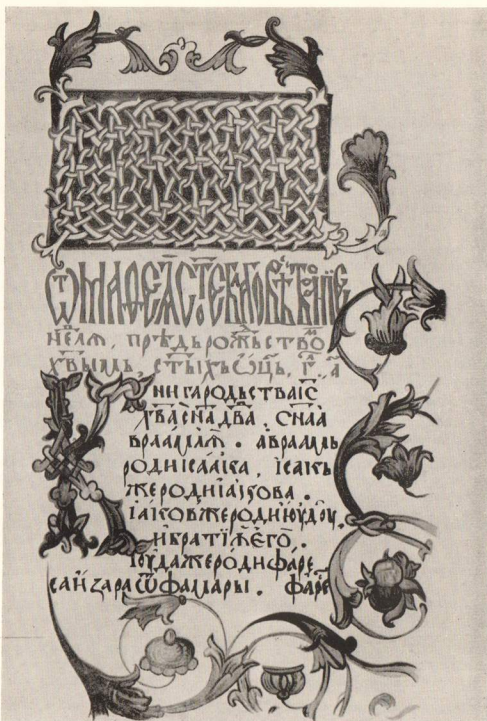 Ѿ МАѲЕѦ СТ҃Е БЛ҃ГОВѢСТВОВАНЇЕ
нєⷣлѧ, прѣдьрожьствоⷨ
хв҃ымь, ст҃ыхъ ѻц҃ь, гл҃а
Книга родьства і҃с
хв҃а сн҃а дв҃а. сн҃а а
враамлѧ. авраамь
роди ісаака. ісакь
же роди іакова.
іаковже роди июдоу.
и братїѧ єго.
Іоуда же роди фаре
са и зара ѿ фамары. фаре